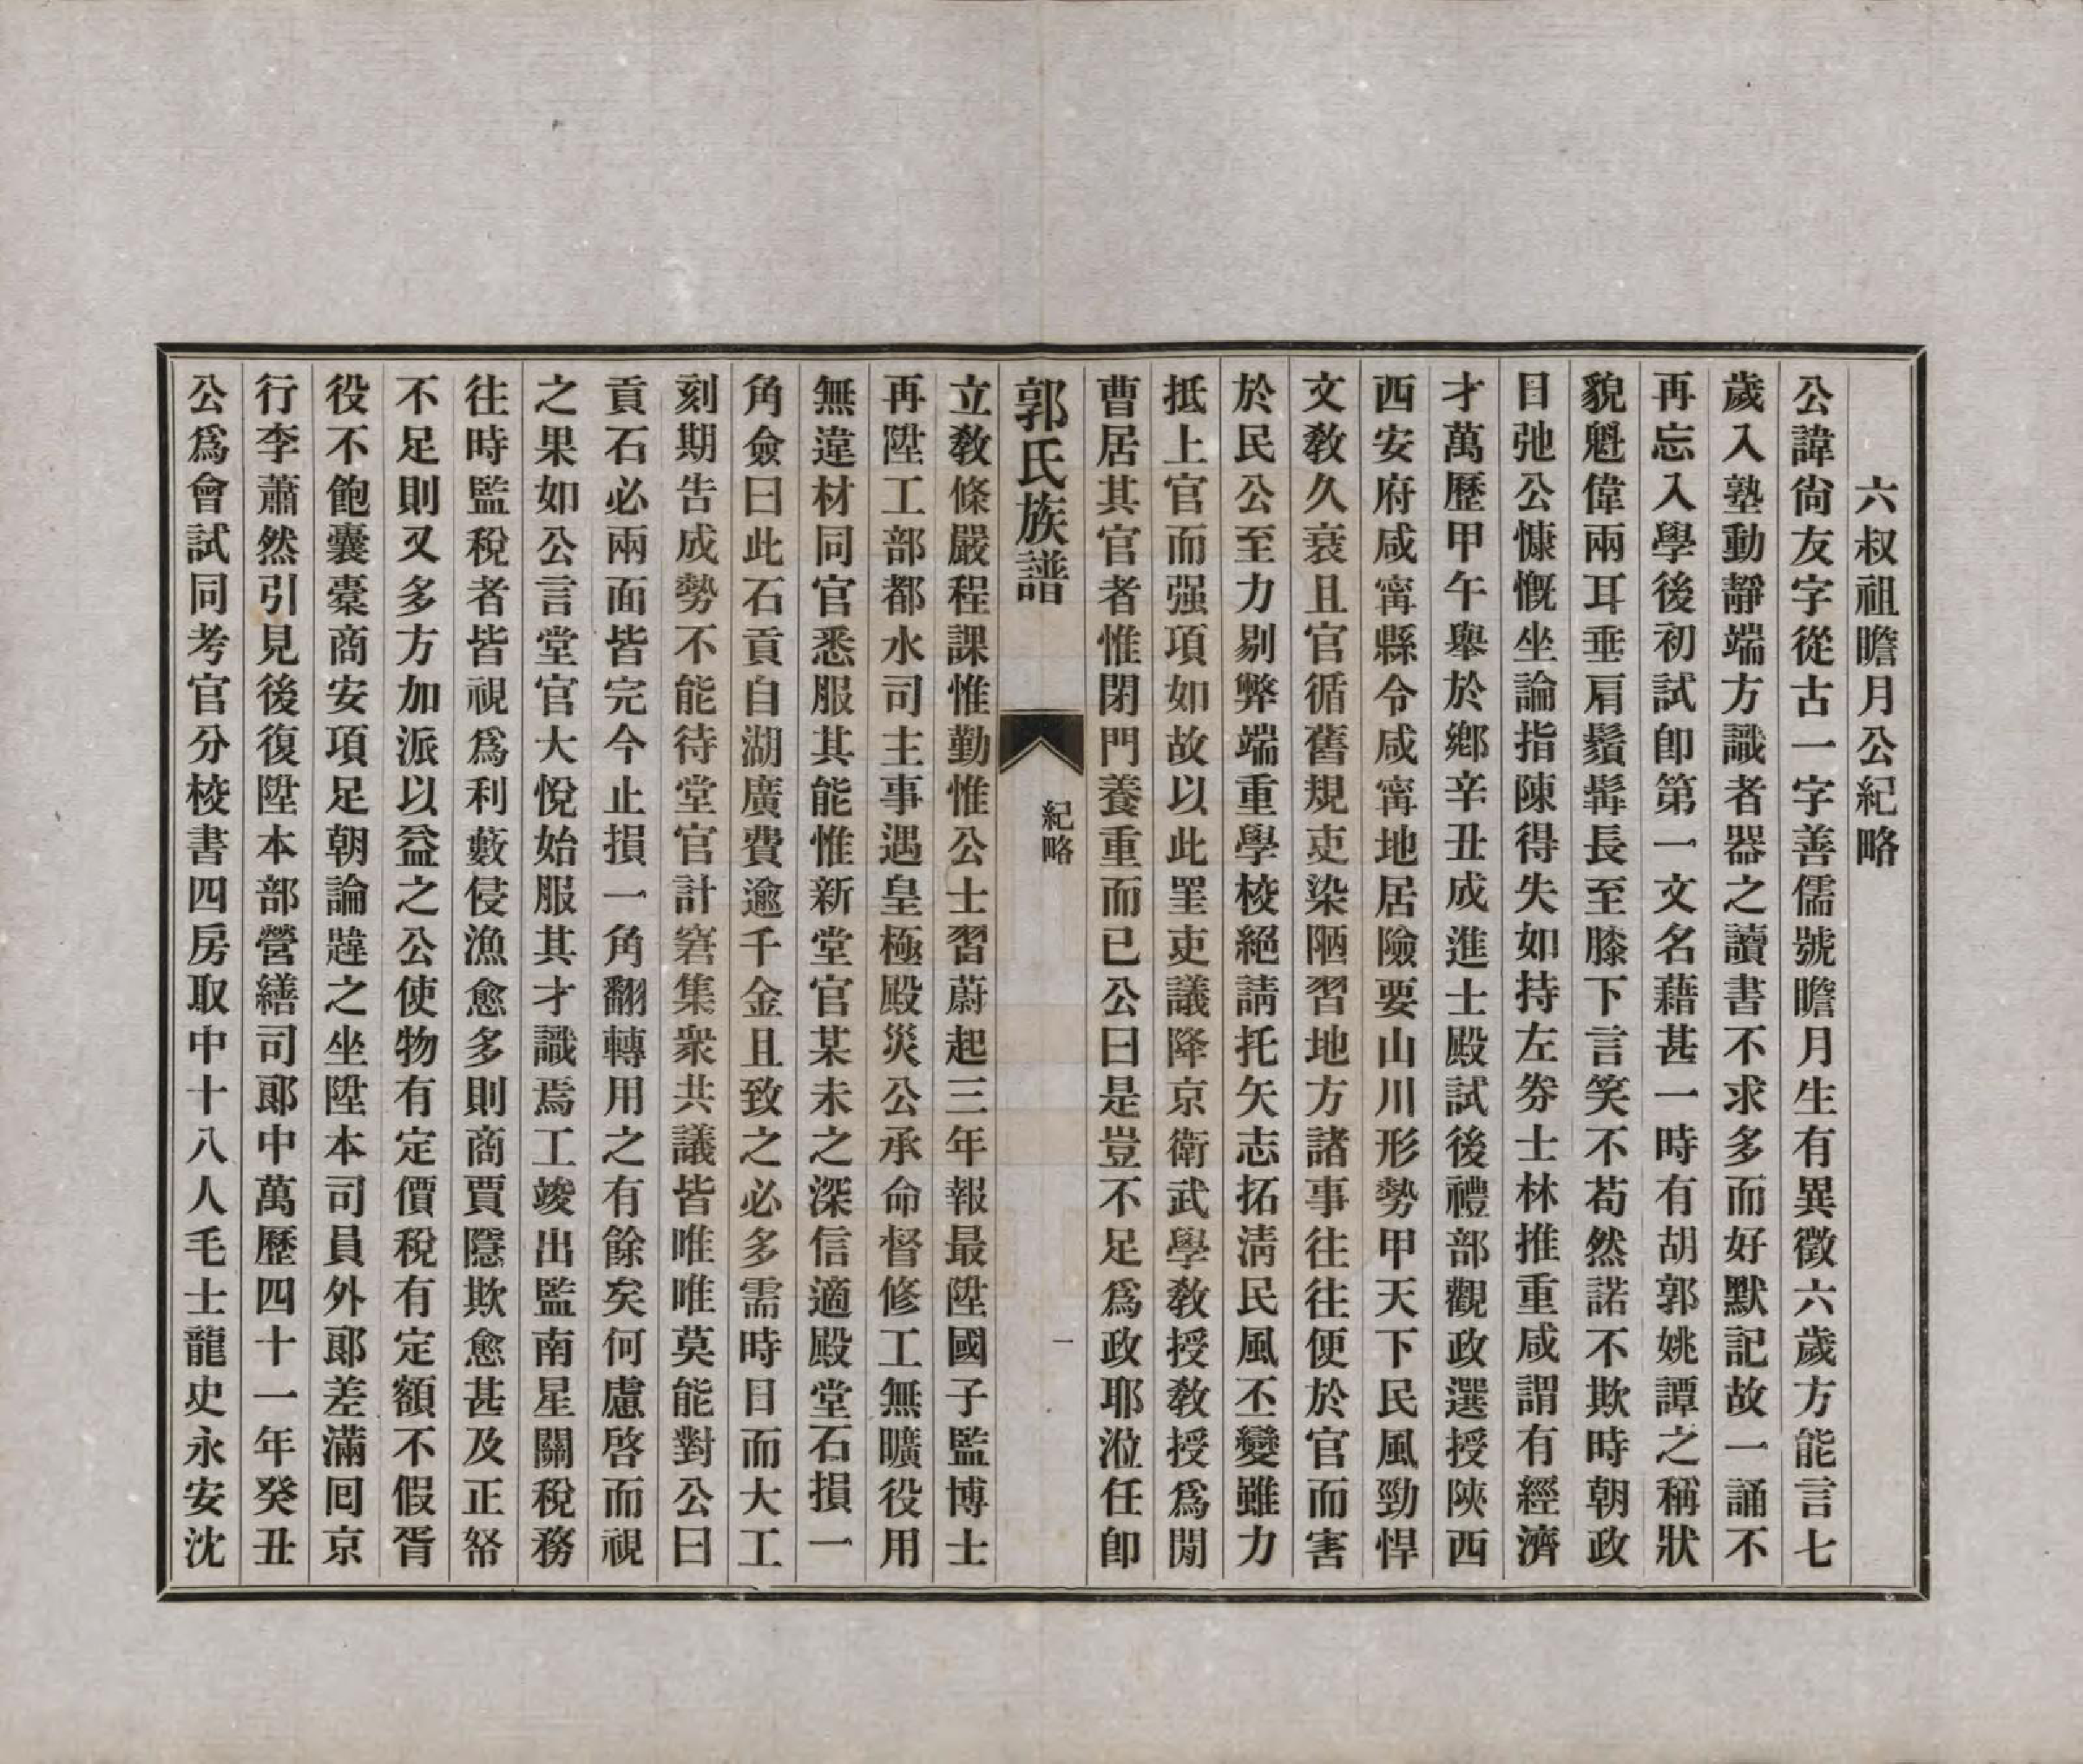 六叔祖瞻月公紀略
公諱尙友字從古一字善儒號瞻月生有異徵六歲方能言七
歲入塾動靜端方識者器之讀書不求多而好默記故一誦不
再忘入學後初試卽第一文名藉甚一時有胡郭姚譚之稱狀
貌魁偉兩耳垂肩鬚髯長至膝下言笑不苟然諾不欺時朝政
日弛公慷慨坐論指陳得失如持左券士林推重咸謂有經濟
才萬歷甲午舉於鄉辛丑成進士殿試後禮部觀政選授陝西
西安府咸甯縣令咸甯地居險要山川形勢甲天下民風勁悍
文敎久衰且官循舊規吏染陋習地方諸事往往便於官而害
於民公至力剔弊端重學校絕請托矢志拓淸民風丕變雖力
抵上官而强項如故以此罣吏議降京衛武學敎授敎授爲閒
曹居其官者惟閉門養重而已公曰是豈不足爲政耶涖任卽
郭氏族譜
紀略
一
立敎條嚴程課惟勤惟公士習蔚起三年報最陞國子監博士
再陞工部都水司主事遇皇極殿災公承命督修工無曠役用
無違材同官悉服其能惟新堂官某未之深信適殿堂石損一
角僉曰此石貢自湖廣費逾千金且致之必多需時日而大工
刻期告成勢不能待堂官計窘集衆共議皆唯唯莫能對公曰
貢石必兩面皆完今止損一角翻轉用之有餘矣何慮啓而視
之果如公言堂官大悅始服其才識焉工竣出監南星關稅務
往時監稅者皆視爲利藪侵漁愈多則商賈隱欺愈甚及正帑
不足則又多方加派以益之公使物有定價稅有定額不假胥
役不飽囊橐商安項足朝論韙之坐陞本司員外郞差滿囘京
行李蕭然引見後復陞本部營繕司郞中萬歷四十一年癸丑
公爲會試同考官分校書四房取中十八人毛士龍史永安沈